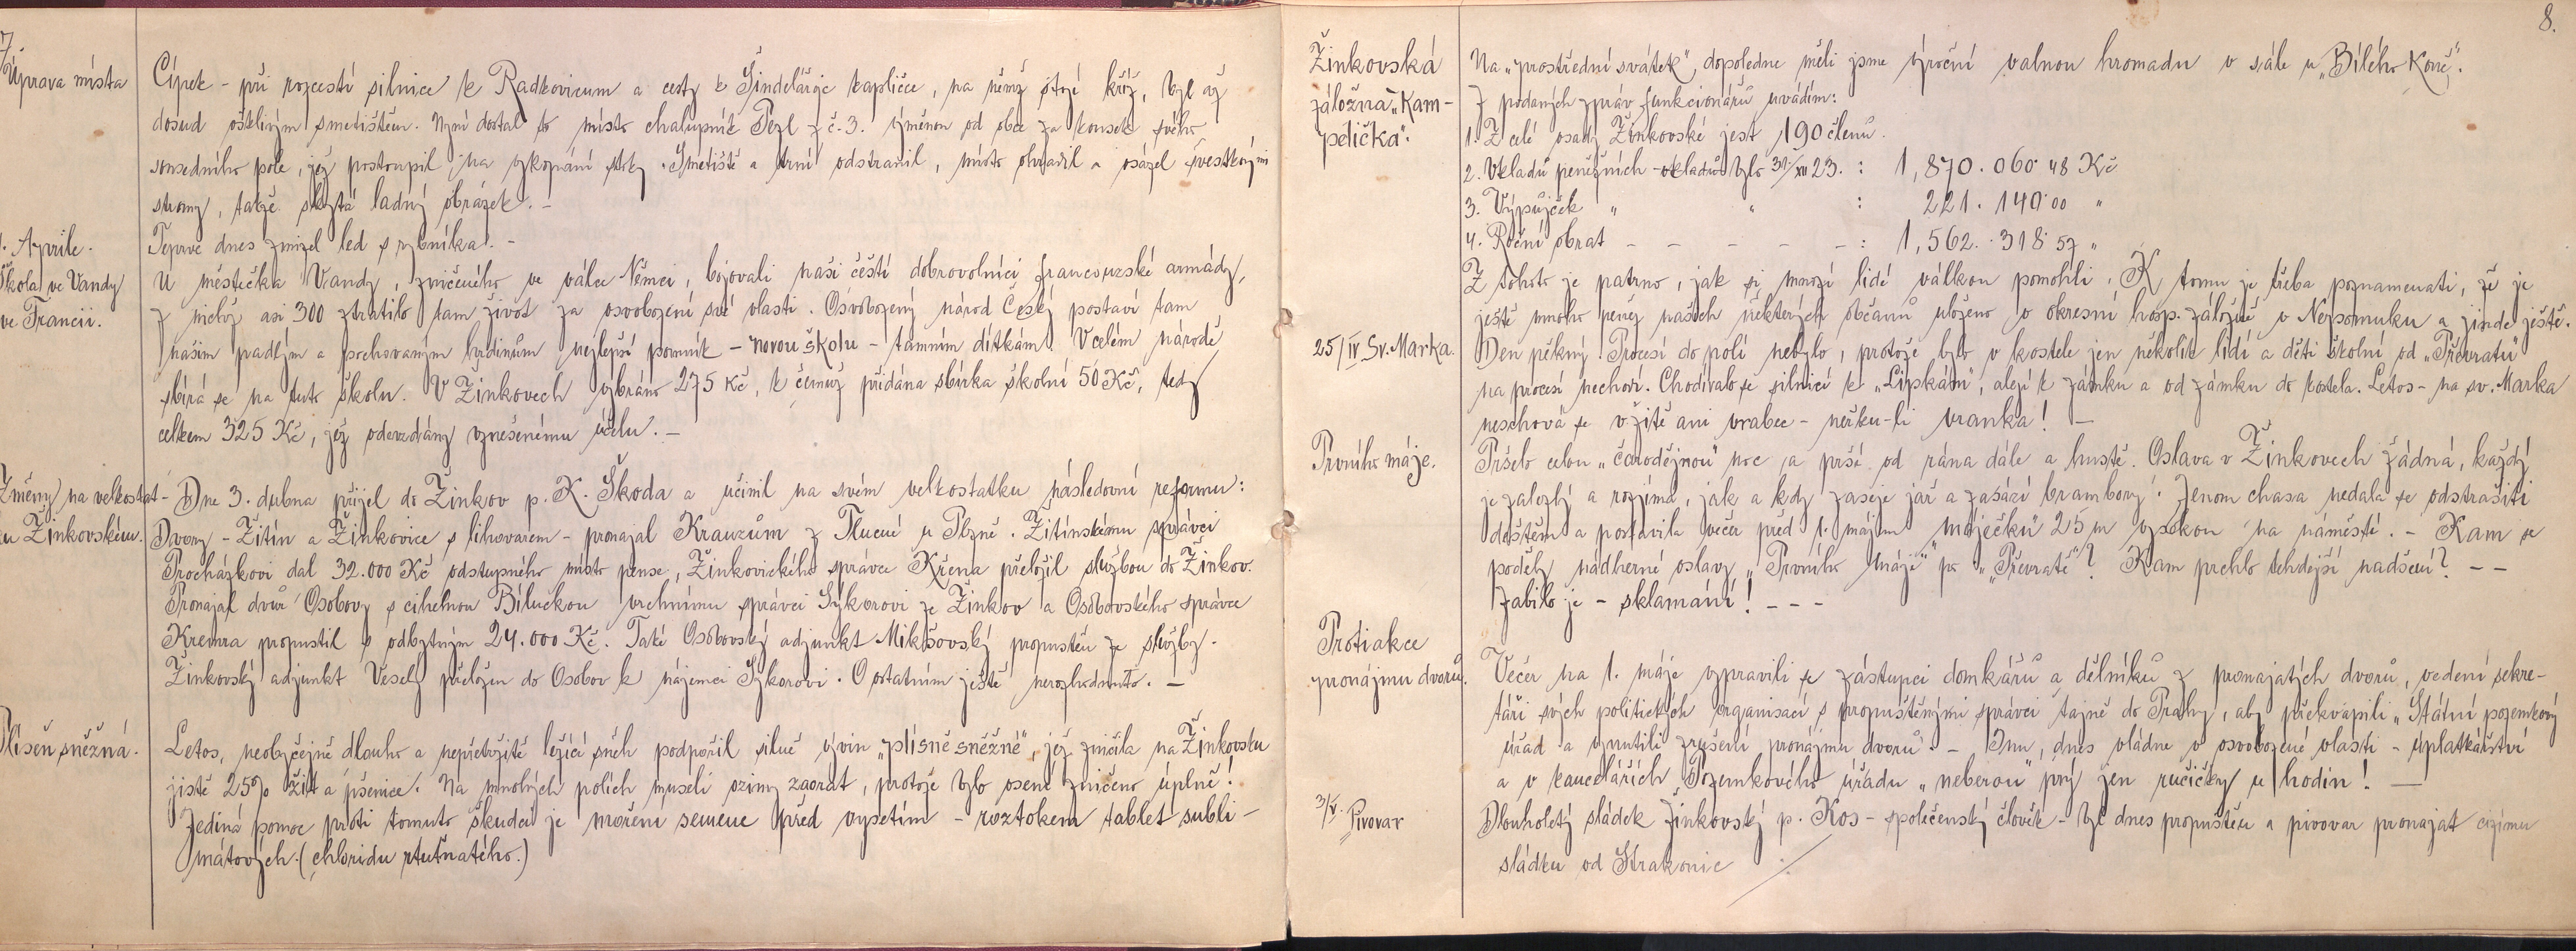 7
Úprava místa
Cípek - při rozcestí silnice k Radkovicum a cesty k Šindelářoje kapličce, na němž stojí kříž, byl až
dosud ošklivým smetištěm. Nyní dostal to místo chalupník Pezl z č. 3. výměnou od obce za kousek svého
sousedního pole, jež postoupil na vykopání stoky. Smetiště a trní odstranil, místo ohradil a osázel švestkovými
stromy, takže skýtá ladný obrázek. -
1. Aprile.
Teprve dnes zmizel led s rybníka. -
Škola ve Vandy
ve Francii.
U městečka Vandy, zničeného ve válce Němci, bojovali naši čeští dobrovolníci francouzské armády,
z nichž asi 300 ztratilo tam život za osvobození své vlasti. Osvobozený národ Český postaví tam
našim padlým a pochovaným hrdinům nejlepší pomník - novou školu - tamním dítkám. V celém národě
sbírá se na tuto školu. V Žinkovech vybráno 275 Kč, k čemuž přidána sbírka školní 50 Kč, tedy
celkem 325 Kč, jež odevzdány vznešenému účelu. -
Změny na velkostat-
ku Žinkovském.
Dne 3. dubna přijel do Žinkov p. K. Škoda a učinil na svém velkostatku následovní reformu:
Dvory - Žitín a Žinkovice s lihovarem - pronajal Krauzům z Tlucné u Plzně. Žitínskému správci
Procházkovi dal 32.000 Kč odstupného místo pense, Žinkovického správce Křena přeložil službou do Žinkov.
Pronajal dvůr Osobovy s cihelnou Bílučkou vrchnímu správci Sýkorovi ze Žinkov a Osobovského správce
Kremra propustil s odbytným 24.000 Kč. Také Osobovský adjunkt Mikšovský propuštěn ze služby.
Žinkovský adjunkt Veselý přeložen do Osobov k nájemci Sýkorovi. O ostatním ještě nerozhodnuto. -
Plíseň sněžná.
Letos, neobyčejně dlouho a nepřetržitě ležící sněh podpořil silně vývin „plísně sněžné", jež zničila na Žinkovsku
jistě 25% žit a pšenice. Na mnohých polích museli ozimy zaorat, protože bylo osení zničeno úplně!
Jediná pomoc proti tomuto škůdci je moření semene před vysetím - roztokem tablet subli-
mátových. (chloridu rtuťnatého.)
8.
Žinkovská
záložna „Kam-
pelička".
Na „prostřední svátek", dopoledne měli jsme výroční valnou hromadu v sále u „Bílého Koně".
Z podaných zpráv funkcionářů uvádím:
1. Z celé osady Žinkovské jest 190 členů.
2. Vkladů peněžních - vkladů bylo 31/XII 23. : 1,870.060·48 Kč
3. Výpůjček " " : 221.140·00 "
4. Roční obrat - - - - - : 1,562.318·57 "
Z tohoto je patrno, jak si mnozí lidé válkou pomohli. K tomu je třeba poznamenati, že je
ještě mnoho peněz našich některých občanů uloženo v okresní hosp. záložně v Nepomuku a jinde ještě.
25/IV Sv. Marka.
Den pěkný. Procesí do polí nebylo, protože bylo v kostele jen několik lidí a děti školní od „Převratu"
na procesí nechodí. Chodívalo se silnicí k „Lipkám", alejí k zámku a od zámku do kostela. Letos - na sv. Marka
neschová se v žitě ani vrabec - neřku-li vranka! -
Prvního máje.
Pršelo celou „čarodějnou" noc a prší od rána dále a hustě. Oslava v Žinkovech žádná, každý
je zalezlý a rozjímá, jak a kdy zaseje jař a zasází brambory. Jenom chasa nedala se odstrašiti
deštěm a postavila večer před 1. májem „máječku" 25 m vysokou na náměstí. - Kam se
poděly nádherné oslavy „Prvního Máje" po „Převratě"? Kam prchlo tehdejší nadšení? - -
Zabilo je - sklamání! - - -
Protiakce
pronájmu dvorů.
Večer na 1. máje vypravili se zástupci domkářů a dělníků z pronajatých dvorů, vedeni sekre-
táři svých politických organisací s propuštěnými správci tajně do Prahy, aby překvapili „Státní pozemkový
úřad a vynutili zrušení pronájmu dvorů. - Inu, dnes vládne v osvobozené vlasti - úplatkářství
a v kancelářích „Pozemkového úřadu „neberou" prý jen ručičky u hodin! -
3/V. Pivovar
Dlouholetý sládek žinkovský p. Kos - společenský člověk - byl dnes propuštěn a pivovar pronajat cizímu
sládku od Strakonic